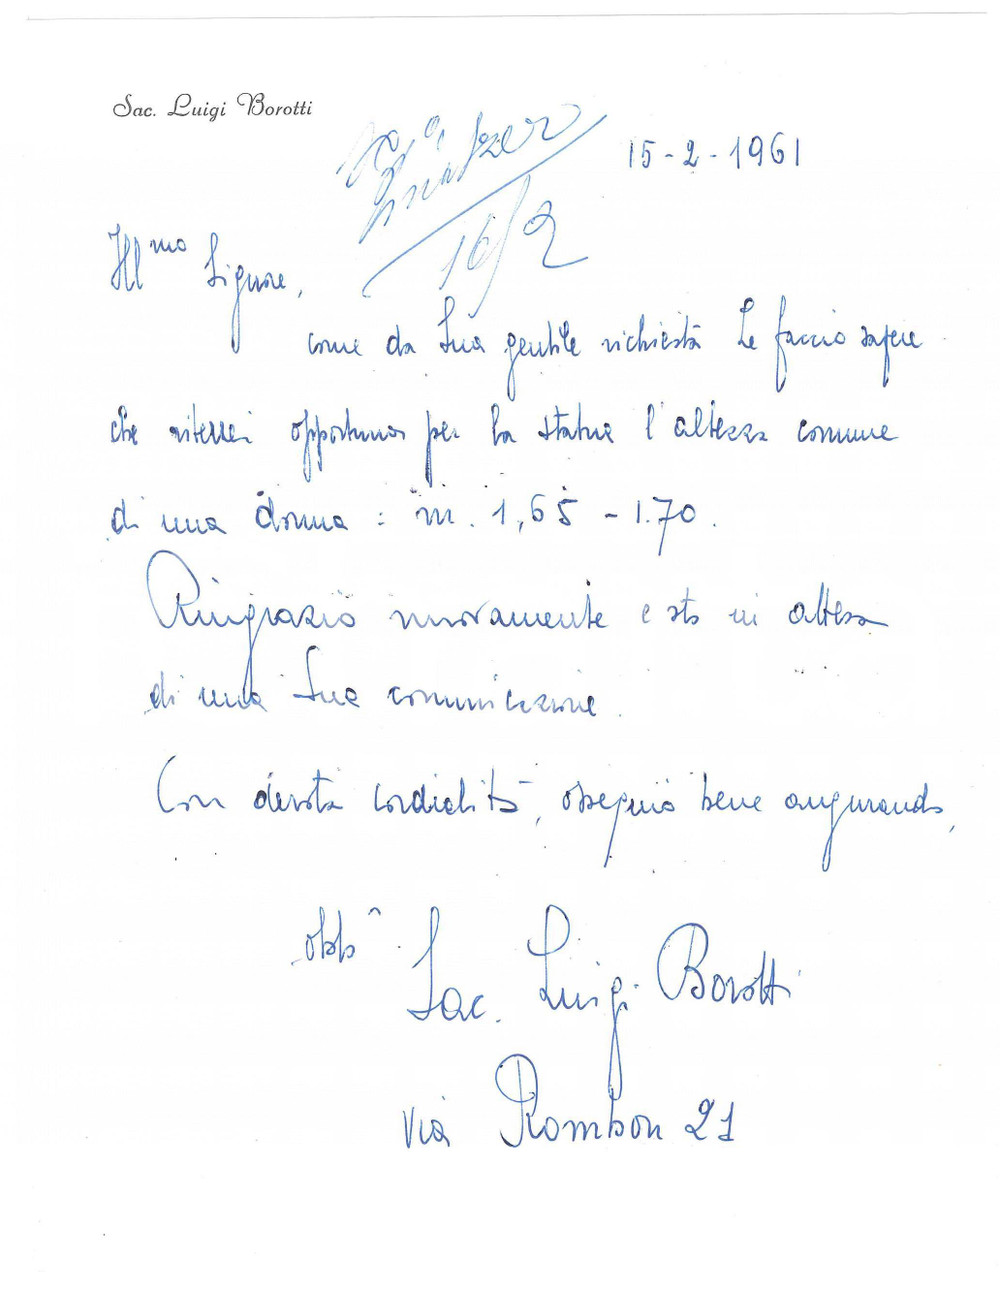 Sac. Luigi Borotti
16/2
15-2-1961
Ill mo Signore,
come da Sua gentile richiesta Le faccio sapere
che riterrei opportuna per la statua l'altezza comune
di una donna : m. 1,65 - 1.70.
Ringrazio nuovamente e sto in attesa
di una Sua comunicazione.
Con devota cordialità, ossequio bene augurando,
obb
Sac. Luigi Borotti
Via Rombon 21